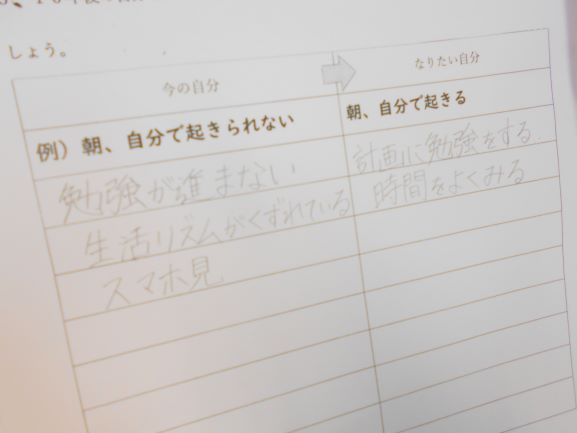 しょう。
今の自分
なりたい自分
例）朝、自分で起きられない
朝、自分で起きる
勉強が進まない
計画に勉強をする
生活リズムがくずれている
時間をよくみる
スマホ見